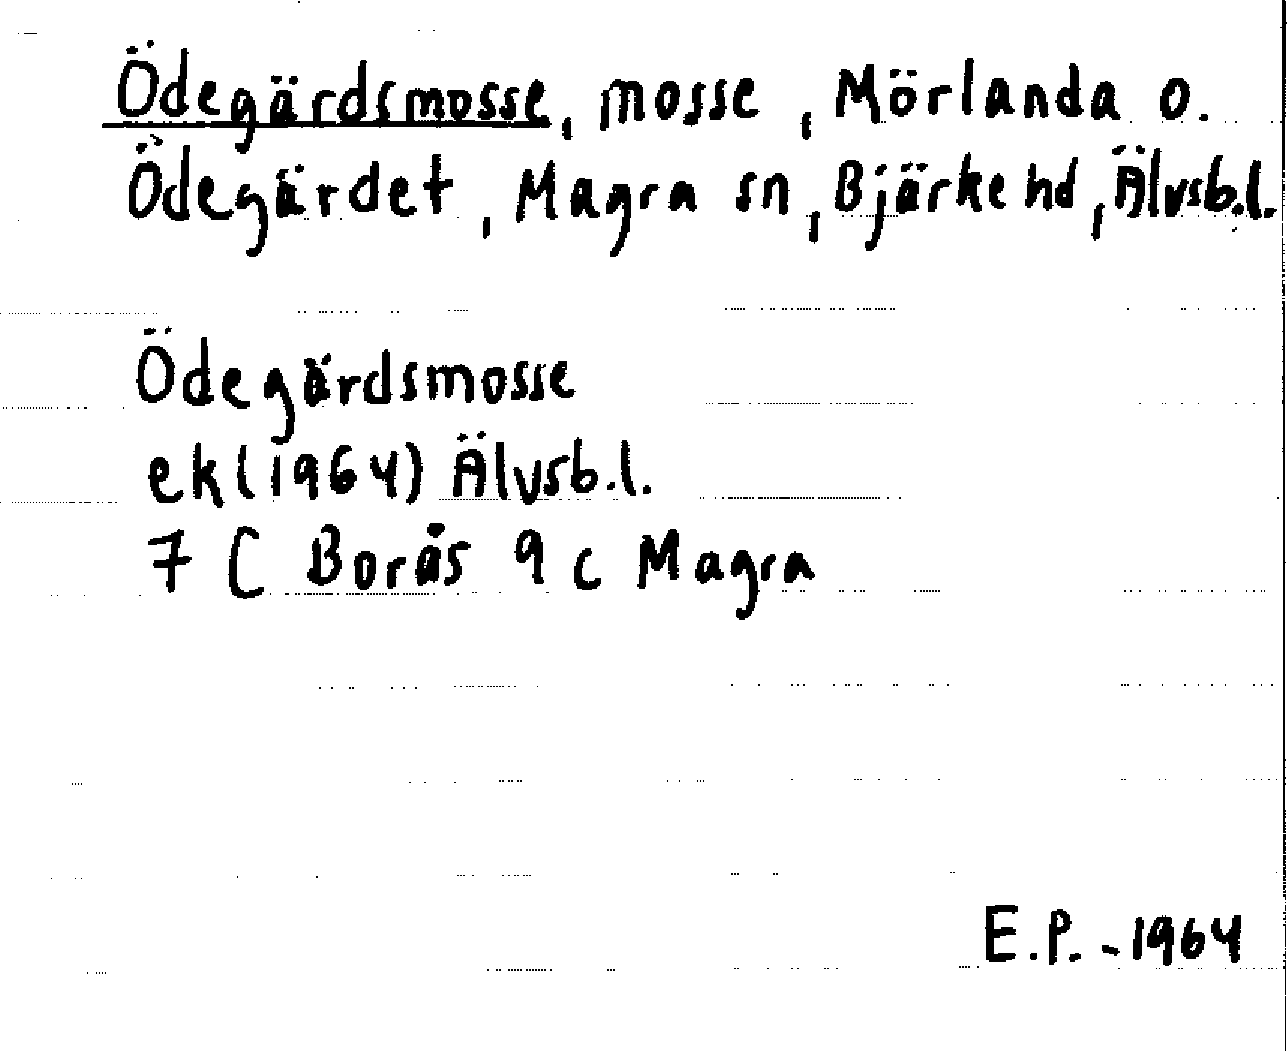 Ödegärdsmosse, mosse, Mörlanda o.
Ödegärdet, Magra sn, Bjärke hd, Älvsb.l.
Ödegärdsmosse
ek(1964) Älvsb.l.
7 C Borås 9 c Magra
E.P. - 1964